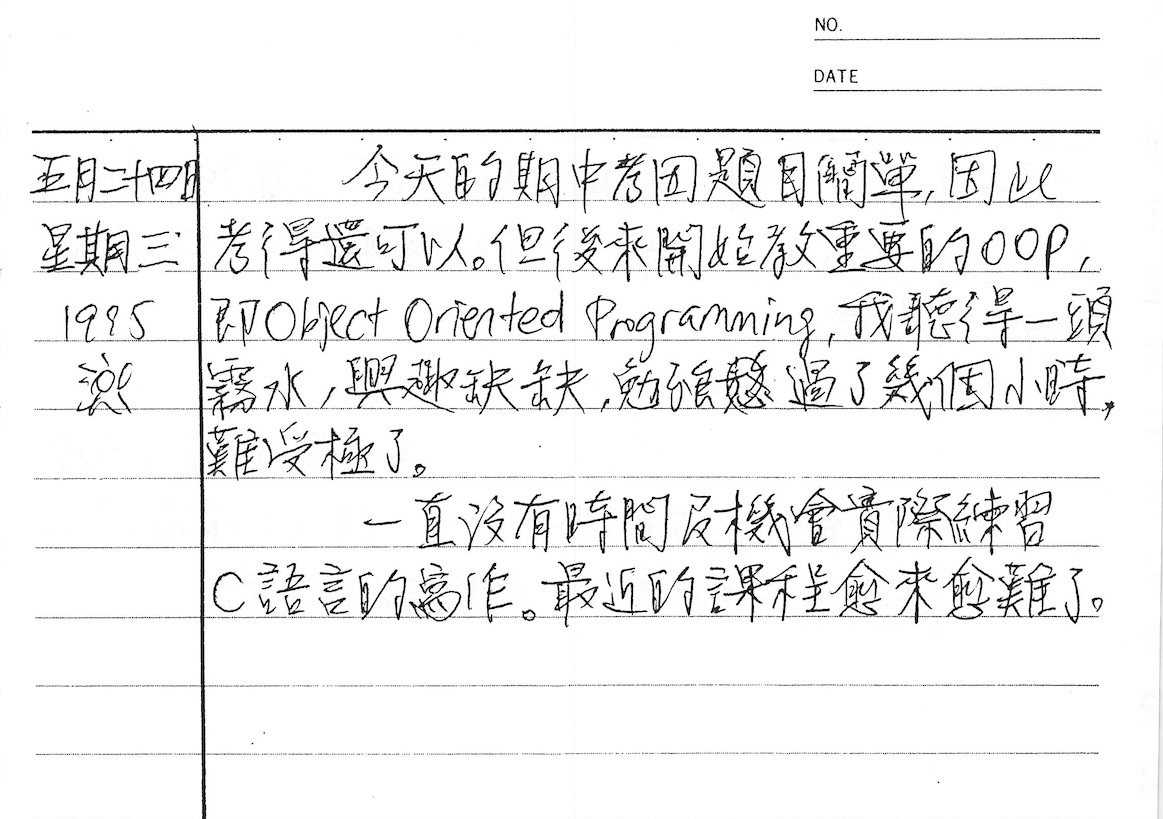 NO.
DATE
五月二十四日
星期三
1995
今天的期中考因題目簡單,因此
考得還可以。但後來開始教重要的OOP,
即Object Oriented Programming,我聽得一頭
霧水,興趣缺缺,勉強熬過了幾個小時,
難受極了。
一直沒有時間及機會實際練習
C語言的寫作。最近的課程愈來愈難了。